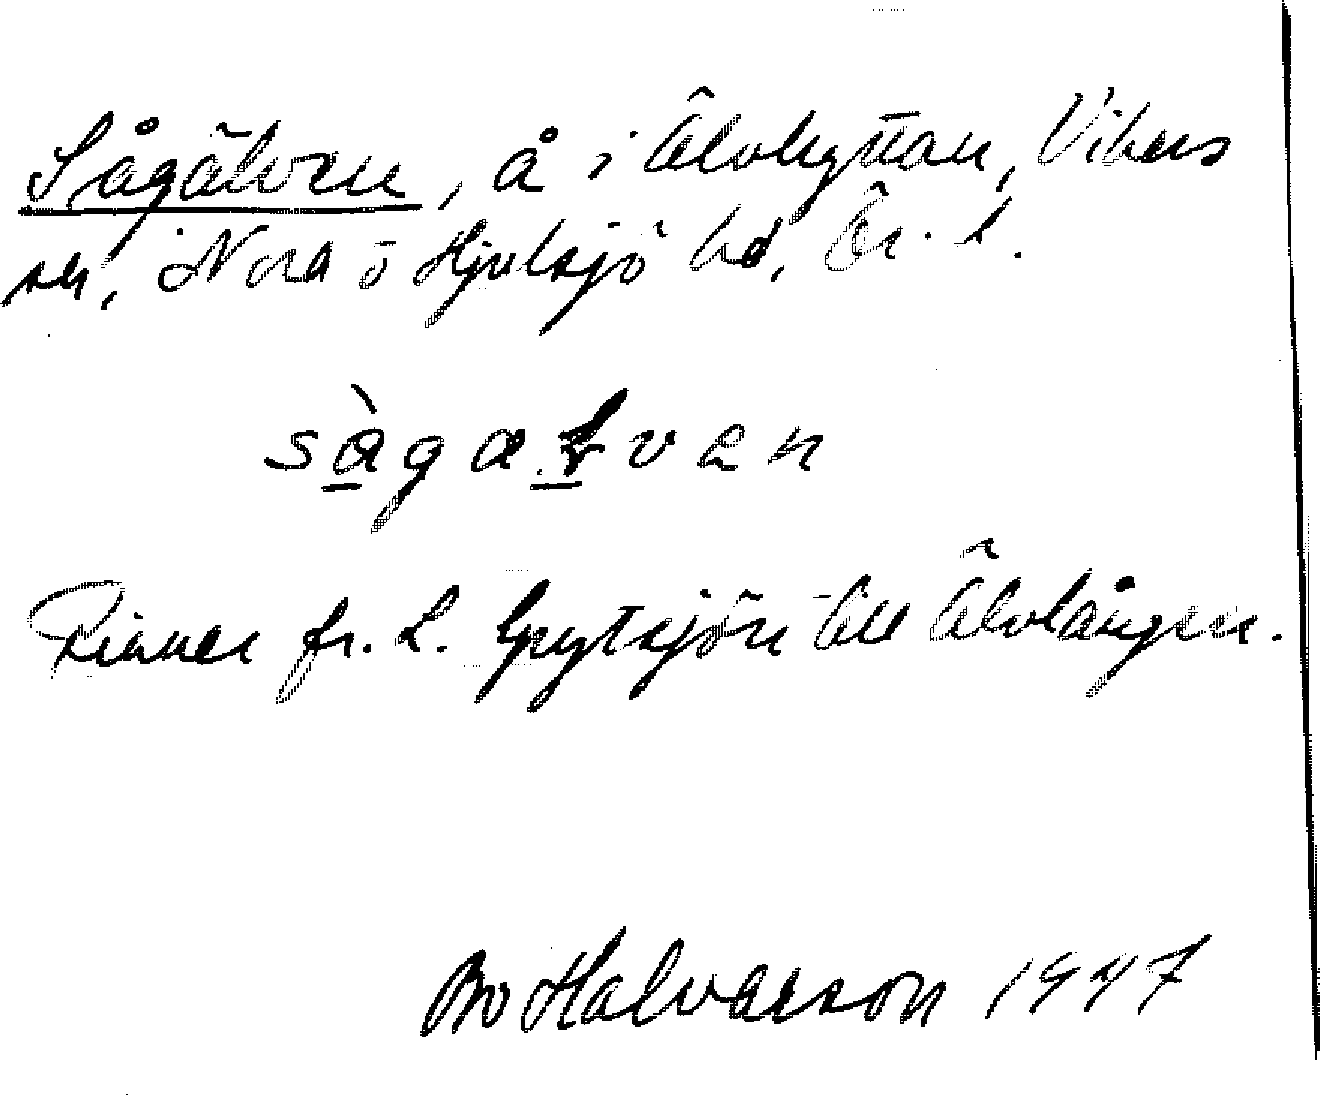 Sågälven, å i Älvhyttan, Vikers
sn, Nora o Hjulsjö hd, Ör. l.
sàgæłvən
Rinner fr. L. Grytsjön till Älvlången.
Bo Halvarson 1947